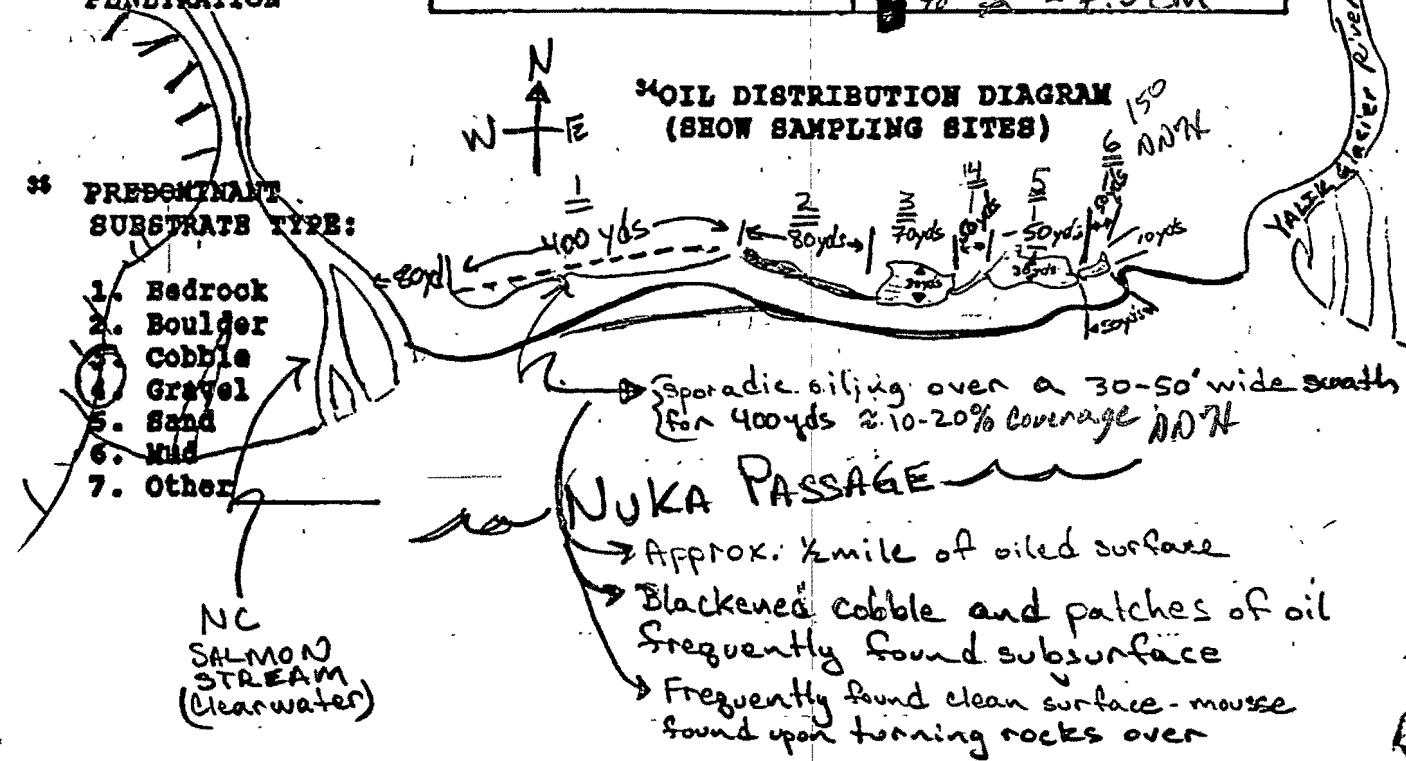 PENETRATION
N
W E
34 OIL DISTRIBUTION DIAGRAM
(SHOW SAMPLING SITES)
150
DDH
Yalik Glacier River
35 PREDOMINANT
SUBSTRATE TYPE:
1. Bedrock
2. Boulder
3. Cobble
4. Gravel
5. Sand
6. Mud
7. Other
1
2
3
4
5
6
80yd
400 yds
80yds
70yds
50yds
10yds
30yds
sporadic oiling over a 30-50' wide swath
for 400yds ≈ 10-20% coverage DDH
NUKA PASSAGE
Approx. ½ mile of oiled surface
Blackened cobble and patches of oil
frequently found subsurface
Frequently found clean surface - mousse
found upon turning rocks over
NC
SALMON
STREAM
(Clearwater)